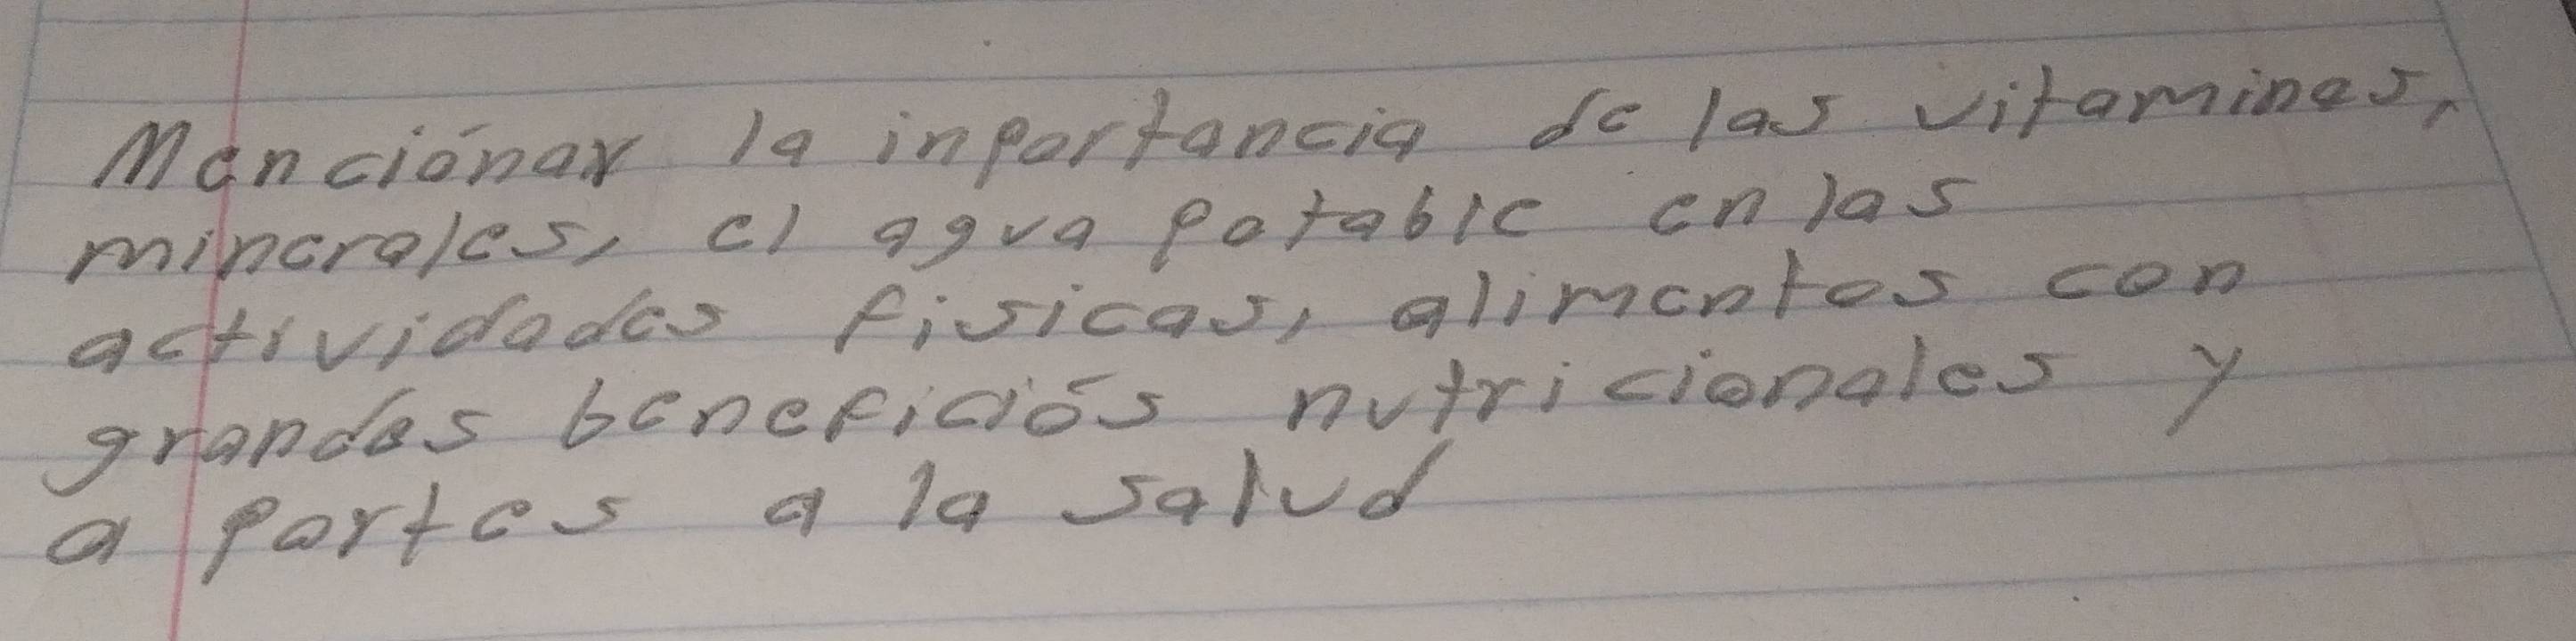 Menciónar la inportancia de las vitamines,
minerales, el agua potable en las
actividades fisicas, alimentos con
grandes beneficiós nutricionales y
a portes a la salud